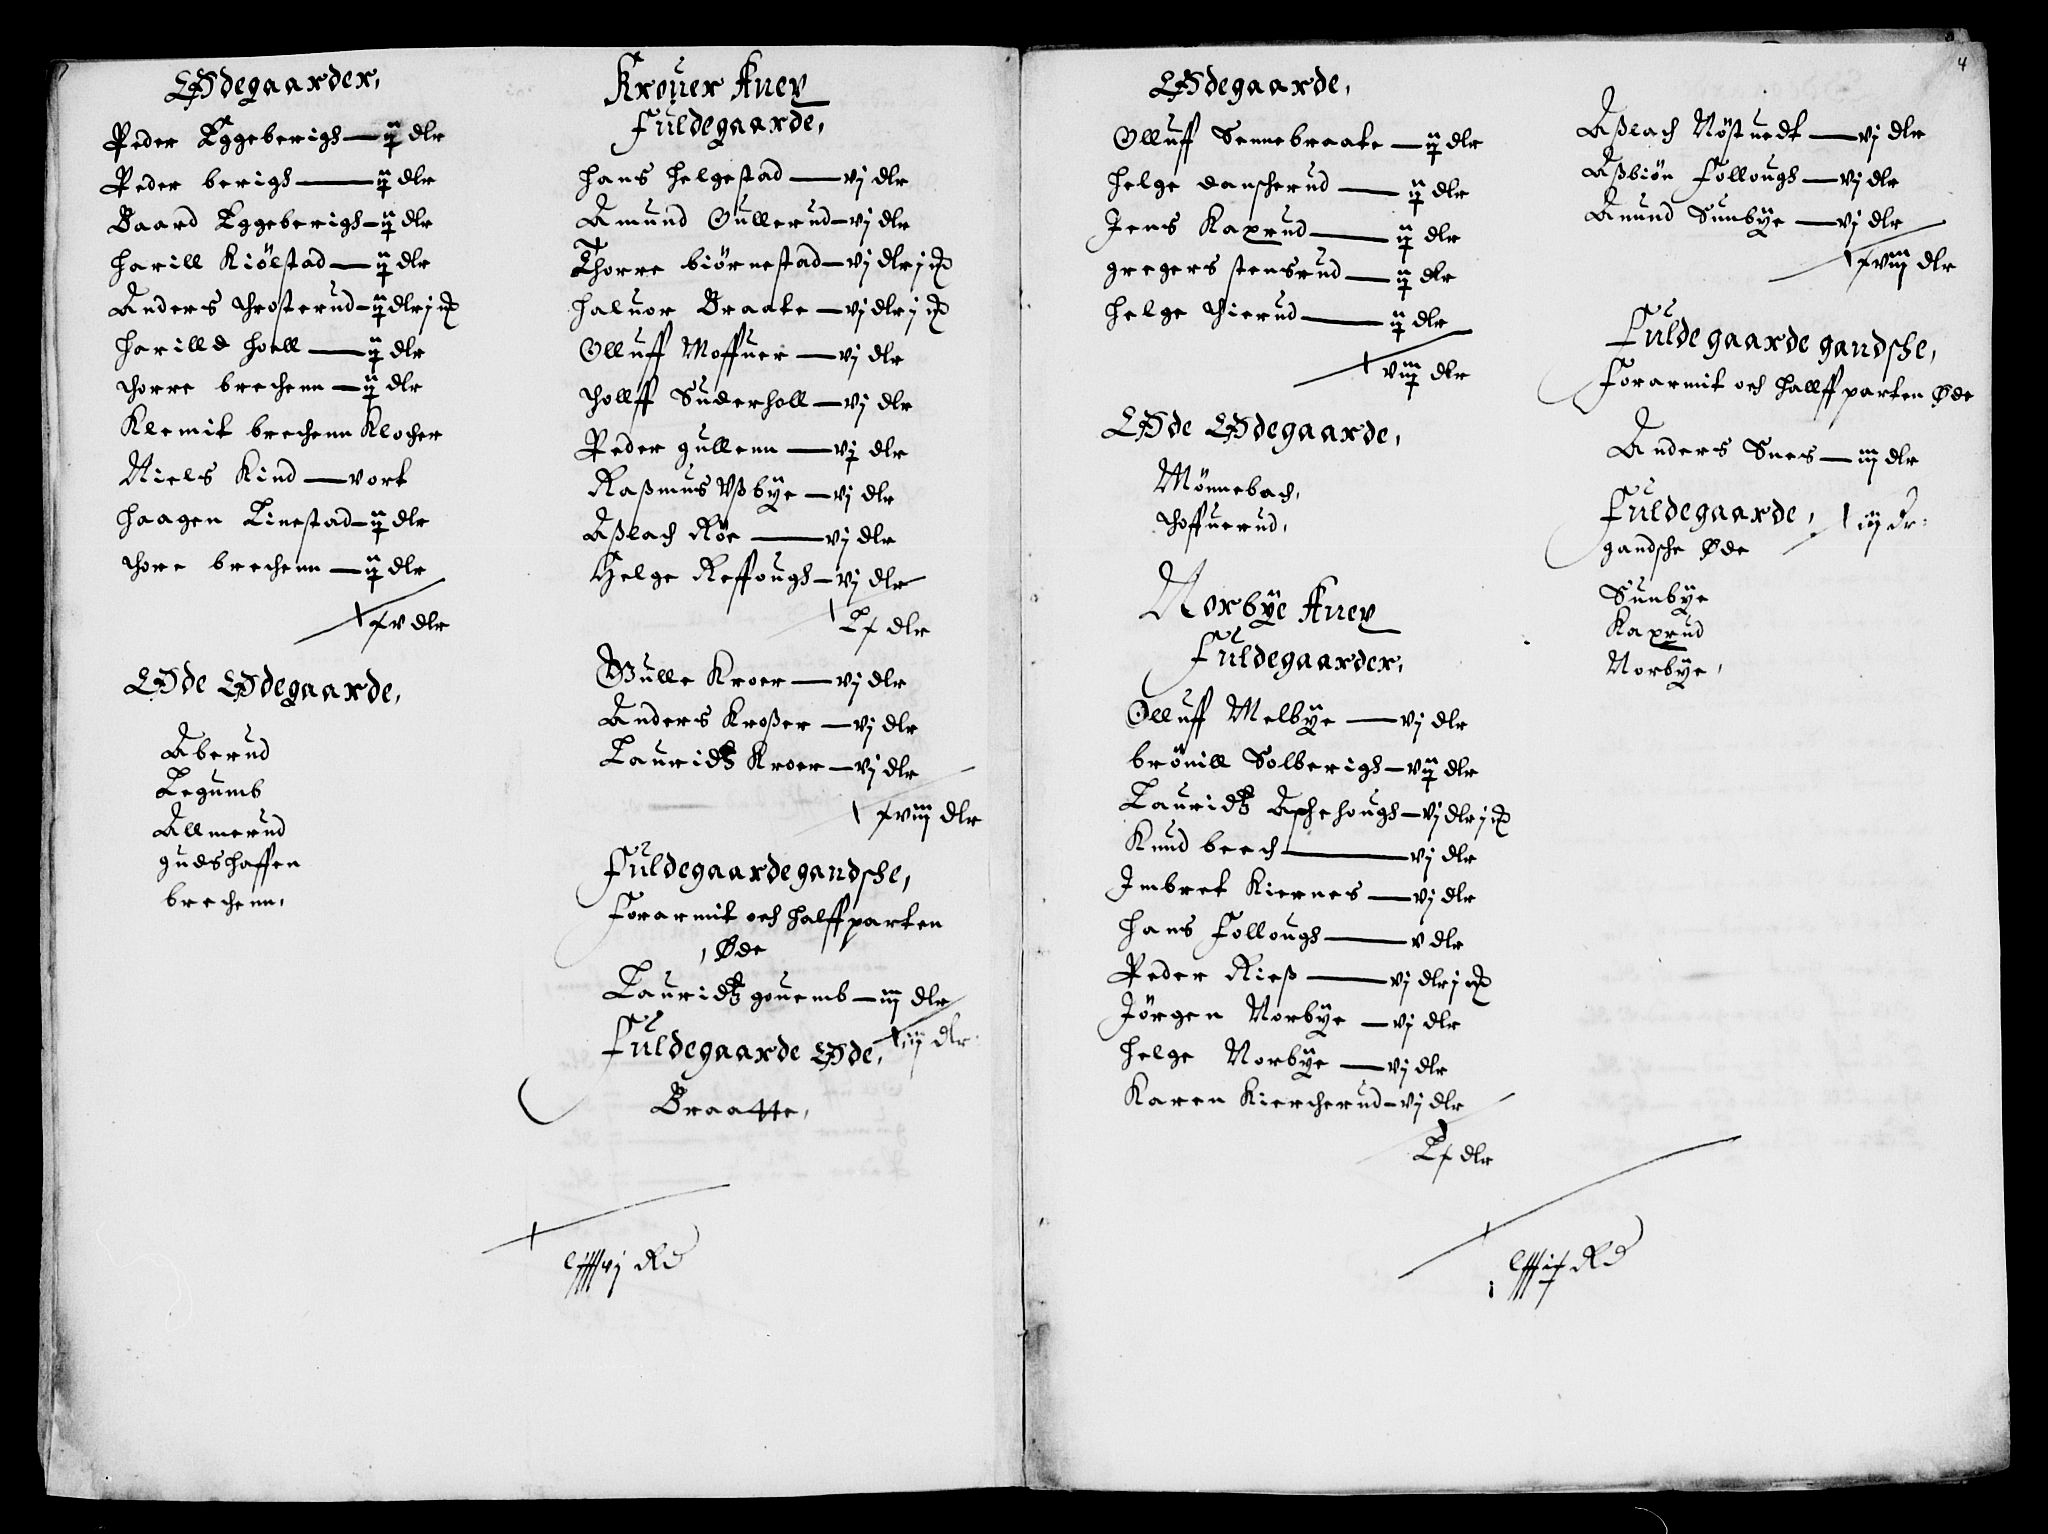 Ødegaarder,
Peder Eggeberigh — ij dlr
Peder berigh — ij dlr
Baard Eggeberigh — ij dlr
Harill Kiölstad — ij dlr
Anders Throsterud — ij dlr j
Harilld Holl — ij dlr
Thorre brechenn — ij dlr
Klemit brechenn Klocher
Niels Kind — vort
Haagen Linestad — ij dlr
Thore brechenn — ij dlr
xv dlr
Øde Ødegaarde,
Aberud
Legumb
Allmerud
gudshaffen
brechenn,
Krouer Anex
Fuldegaarde,
Hans Helgestad — vj dlr
Amund Gullerud — vj dlr
Thorre biörnestad — vj dlr j
Haluor Braate — vj dlr j
Olluff Moffuer — vj dlr
Thollff Suderholl — vj dlr
Peder gullenn — vj dlr
Raßmus Vßbÿe — vj dlr
Aßlach Röe — vj dlr
Helge Reffough — vj dlr
Lx dlr
Gulle Kroer — vj dlr
Anders Kroßer — vj dlr
Lauridtz Kroer — vj dlr
xviij dlr
Fuldegaarde gandsche,
Forarmit och halffparten
, Øde
Lauridtz gouemb — iij dlr
iij dlr
Fuldegaarde Øde,
Braatte,
Cxxxxvj Rd
4
Ødegaarde,
Olluff Sennebraate — ij dlr
Helge danscherud — ij dlr
Jens Kaxrud — ij dlr
gregers stensrud — ij dlr
Helge Thierud — ij dlr
viij dlr
Øde Ødegaarde,
Mönnebach,
Thoffuerud,
Norbÿe Anex
Fuldegaarder,
Olluff Melbÿe — vj dlr
brönill Solberigh — vij dlr
Lauridtz Aschehough — vj dlr j
Knud bech — vj dlr
Imbret Kiernes — vj dlr
Hans Follough — v dlr
Peder Rieß — vj dlr j
Jörgen Norbÿe — vj dlr
Helge Norbÿe — vj dlr
Karen Kiercherud — vj dlr
Lx dlr
Aßlach Nöstuedt — vj dlr
Aßbiön Follough — vj dlr
Anund Sunbÿe — vj dlr
xviij dlr
Fulde gaarde gandsche,
Forarmit och Hallffparten Øde
Anders Snes — iij dlr
iij dr:
Fuldegaarde,
gandsche Øde
Sunbÿe
Kaxrud
Norbÿe,